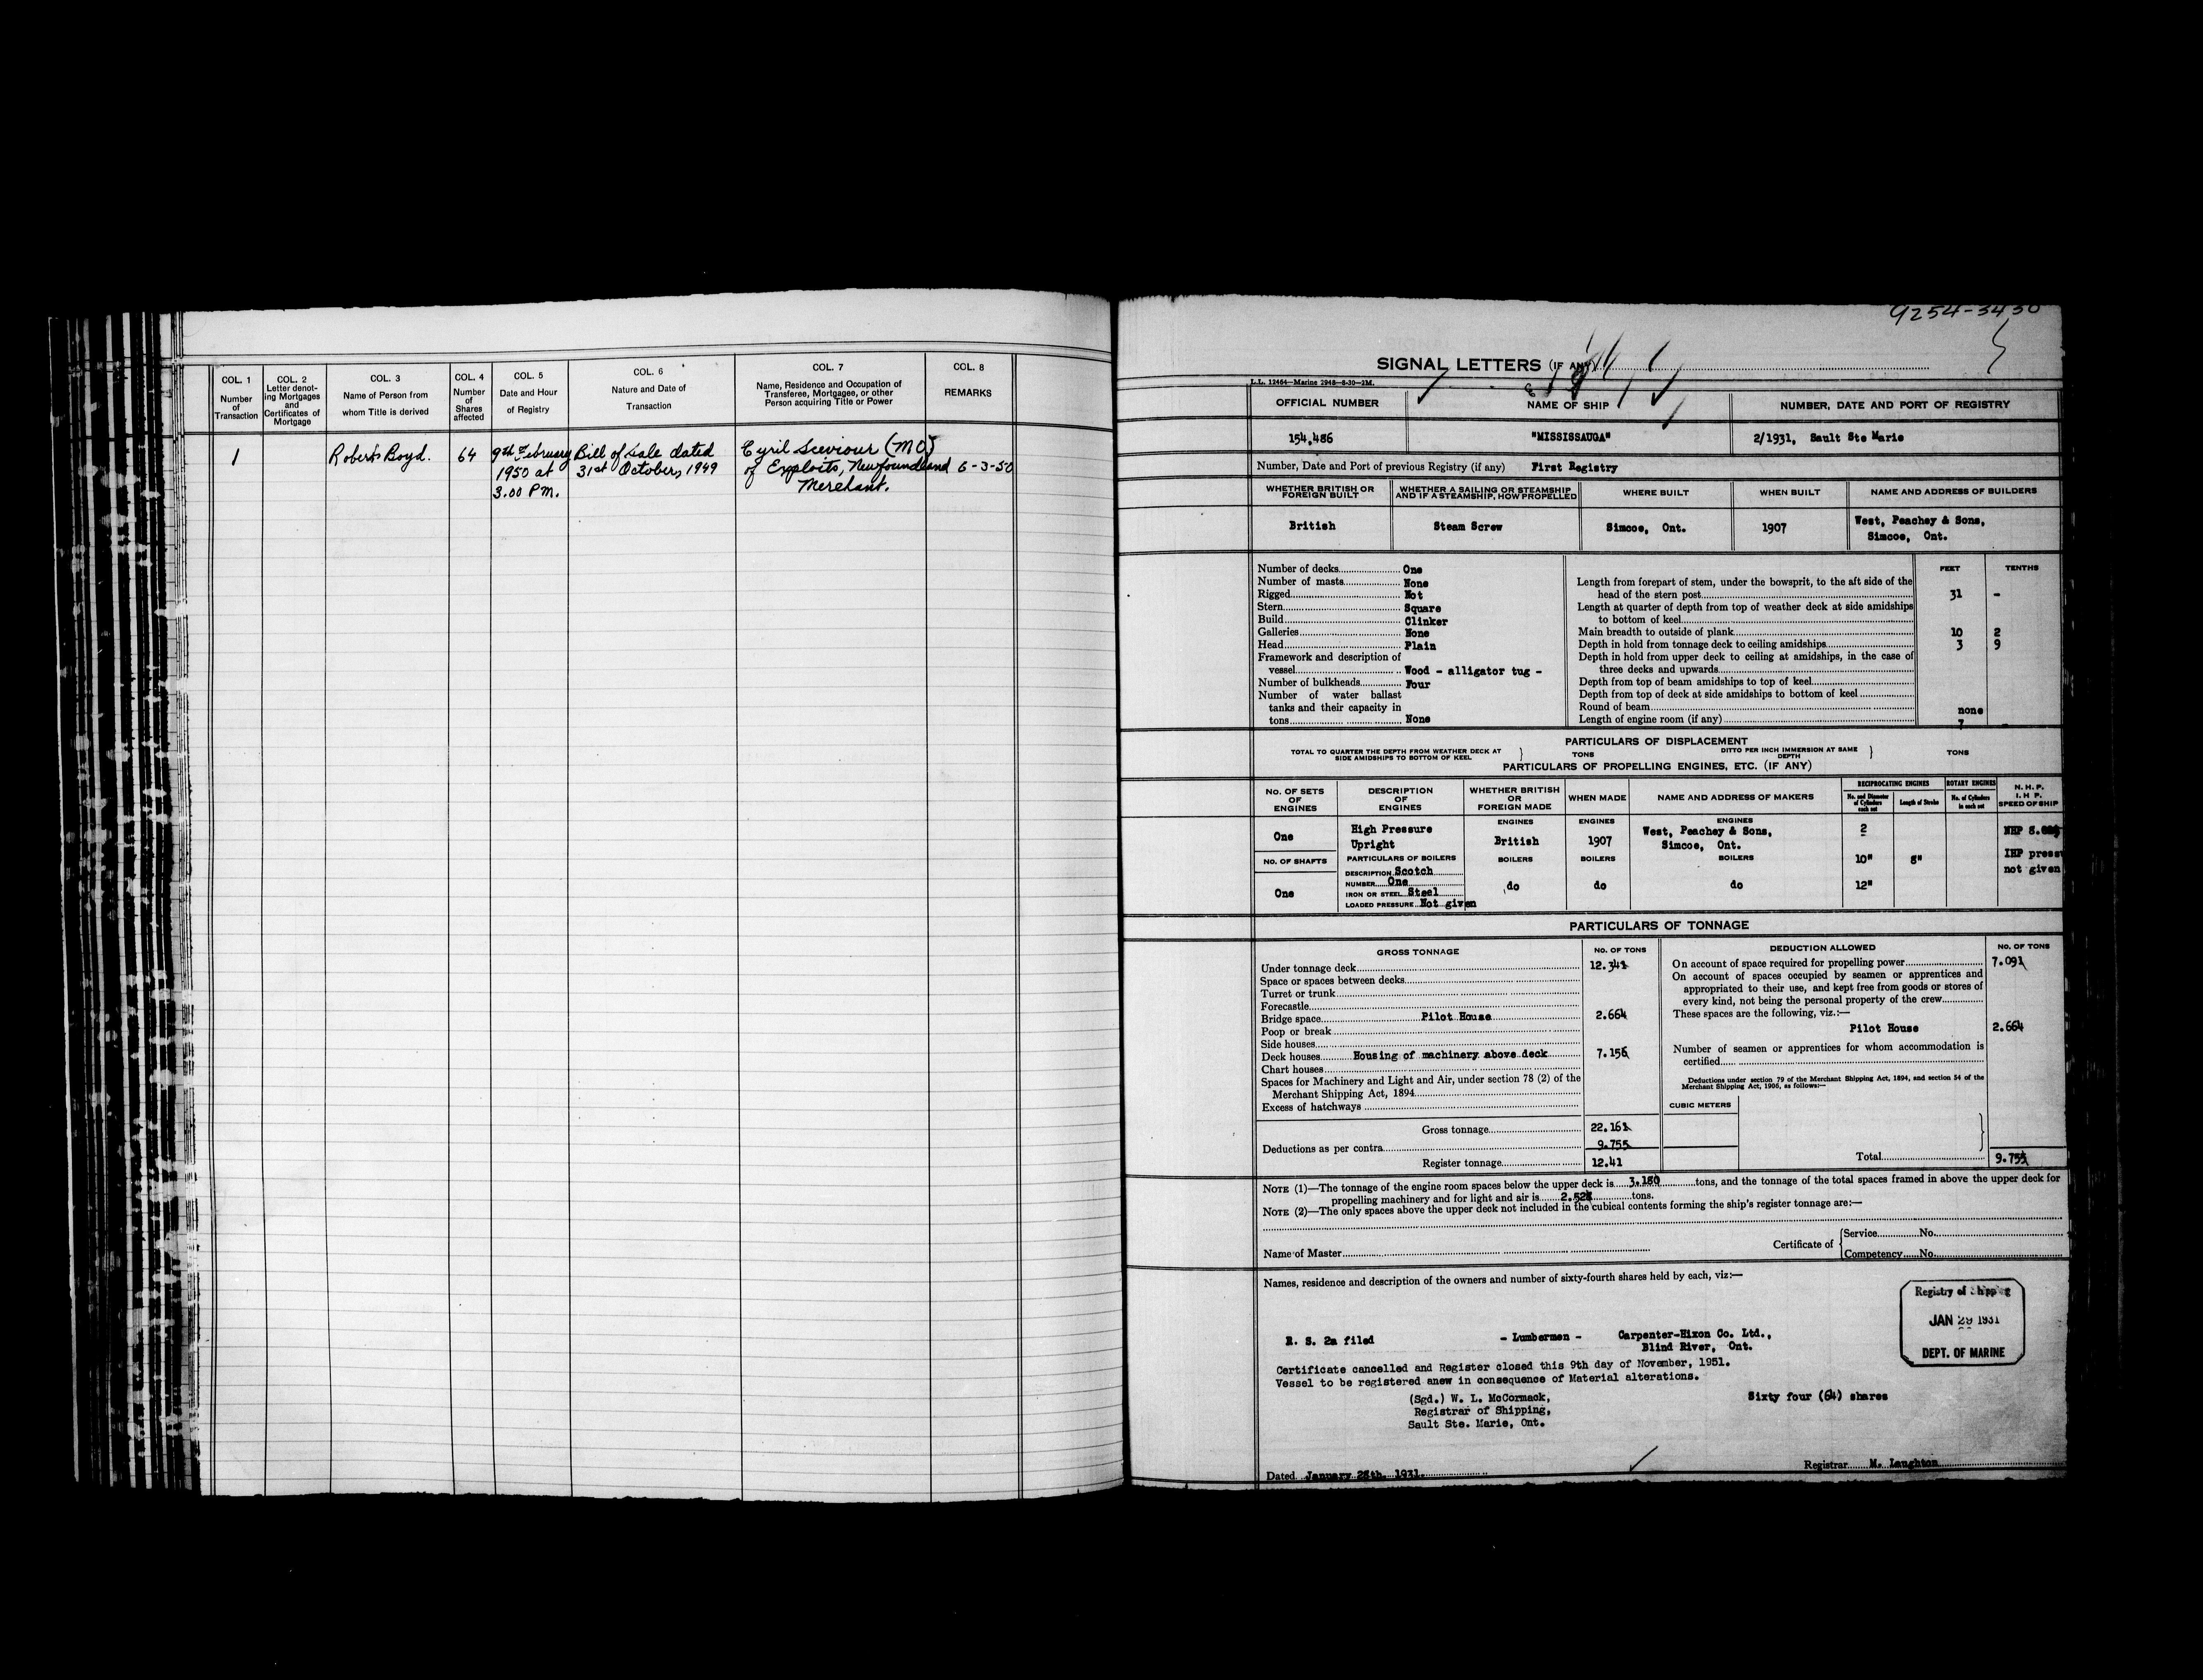 COL. 1
Number
of
Transaction
COL. 2
Letter denot-
ing Mortgages
and
Certificates of
Mortgage
COL. 3
Name of Person from
whom Title is derived
COL. 4
Number
of
Shares
affected
COL. 5
Date and Hour
of Registry
COL. 6
Nature and Date of
Transaction
COL. 7
Name, Residence and Occupation of
Transferee, Mortgagee, or other
Person acquiring Title or Power
COL. 8
REMARKS
1
Robert Boyd.
64
9th February
1950 at
3.00 P.M.
Bill of Sale dated
31st October, 1949
Cyril Sceviour (MO)
of Exploits, Newfoundland
Merchant.
6-3-50
9254-3430
SIGNAL LETTERS (IF ANY)
L.L. 12464—Marine 2948—8-30—2M.
OFFICIAL NUMBER
NAME OF SHIP
NUMBER, DATE AND PORT OF REGISTRY
154,486
"MISSISSAUGA"
2/1931, Sault Ste Marie
Number, Date and Port of previous Registry (if any) First Registry
WHETHER BRITISH OR
FOREIGN BUILT
WHETHER A SAILING OR STEAMSHIP
AND IF A STEAMSHIP, HOW PROPELLED
WHERE BUILT
WHEN BUILT
NAME AND ADDRESS OF BUILDERS
British
Steam Screw
Simcoe, Ont.
1907
West, Peachey & Sons,
Simcoe, Ont.
Number of decks One
Number of masts None
Rigged Not
Stern Square
Build Clinker
Galleries None
Head Plain
Framework and description of
vessel Wood - alligator tug -
Number of bulkheads Four
Number of water ballast
tanks and their capacity in
tons None
FEET TENTHS
Length from forepart of stem, under the bowsprit, to the aft side of the
head of the stern post 31 -
Length at quarter of depth from top of weather deck at side amidships
to bottom of keel
Main breadth to outside of plank 10 2
Depth in hold from tonnage deck to ceiling amidships 3 9
Depth in hold from upper deck to ceiling at amidships, in the case of
three decks and upwards
Depth from top of beam amidships to top of keel
Depth from top of deck at side amidships to bottom of keel
Round of beam none
Length of engine room (if any) 7 -
PARTICULARS OF DISPLACEMENT
TOTAL TO QUARTER THE DEPTH FROM WEATHER DECK AT
SIDE AMIDSHIPS TO BOTTOM OF KEEL
TONS
DITTO PER INCH IMMERSION AT SAME
DEPTH
TONS
PARTICULARS OF PROPELLING ENGINES, ETC. (IF ANY)
NO. OF SETS
OF
ENGINES
DESCRIPTION
OF
ENGINES
WHETHER BRITISH
OR
FOREIGN MADE
WHEN MADE
NAME AND ADDRESS OF MAKERS
RECIPROCATING ENGINES
No. and Diameter
of Cylinders
each set
Length of Stroke
ROTARY ENGINES
No. of Cylinders
in each set
N. H. P.
I. H. P.
SPEED OF SHIP
One
High Pressure
Upright
ENGINES
British
ENGINES
1907
ENGINES
West, Peachey & Sons,
Simcoe, Ont.
2
10"
12"
8"
NHP
IHP
not given
NO. OF SHAFTS
One
PARTICULARS OF BOILERS
DESCRIPTION Scotch
NUMBER One
IRON OR STEEL Steel
LOADED PRESSURE Not given
BOILERS
do
BOILERS
do
BOILERS
do
PARTICULARS OF TONNAGE
GROSS TONNAGE
NO. OF TONS
Under tonnage deck 12.341
Space or spaces between decks
Turret or trunk
Forecastle
Bridge space Pilot House 2.664
Poop or break
Side houses
Deck houses Housing of machinery above deck 7.156
Chart houses
Spaces for Machinery and Light and Air, under section 78 (2) of the
Merchant Shipping Act, 1894
Excess of hatchways
Gross tonnage 22.161
Deductions as per contra 9.755
Register tonnage 12.41
DEDUCTION ALLOWED
NO. OF TONS
On account of space required for propelling power 7.091
On account of spaces occupied by seamen or apprentices and
appropriated to their use, and kept free from goods or stores of
every kind, not being the personal property of the crew
These spaces are the following, viz.:—
Pilot House 2.664
Number of seamen or apprentices for whom accommodation is
certified
Deductions under section 79 of the Merchant Shipping Act, 1894, and section 54 of the
Merchant Shipping Act, 1906, as follows:—
CUBIC METERS
Total 9.755
NOTE (1)—The tonnage of the engine room spaces below the upper deck is 3.180 tons, and the tonnage of the total spaces framed in above the upper deck for
propelling machinery and for light and air is tons.
NOTE (2)—The only spaces above the upper deck not included in the cubical contents forming the ship's register tonnage are:—
Name of Master
Certificate of
Service No.
Competency No.
Names, residence and description of the owners and number of sixty-fourth shares held by each, viz:—
Registry of Shipping
JAN 29 1931
DEPT. OF MARINE
R. S. 2a filed - Lumbermen - Carpenter-Hixon Co. Ltd.,
Blind River, Ont.
Certificate cancelled and Register closed this 9th day of November, 1951.
Vessel to be registered anew in consequence of Material alterations.
(Sgd.) W. L. McCormack,
Registrar of Shipping,
Sault Ste. Marie, Ont.
Sixty four (64) shares
Dated January 28th, 1931.
Registrar M. Laughton